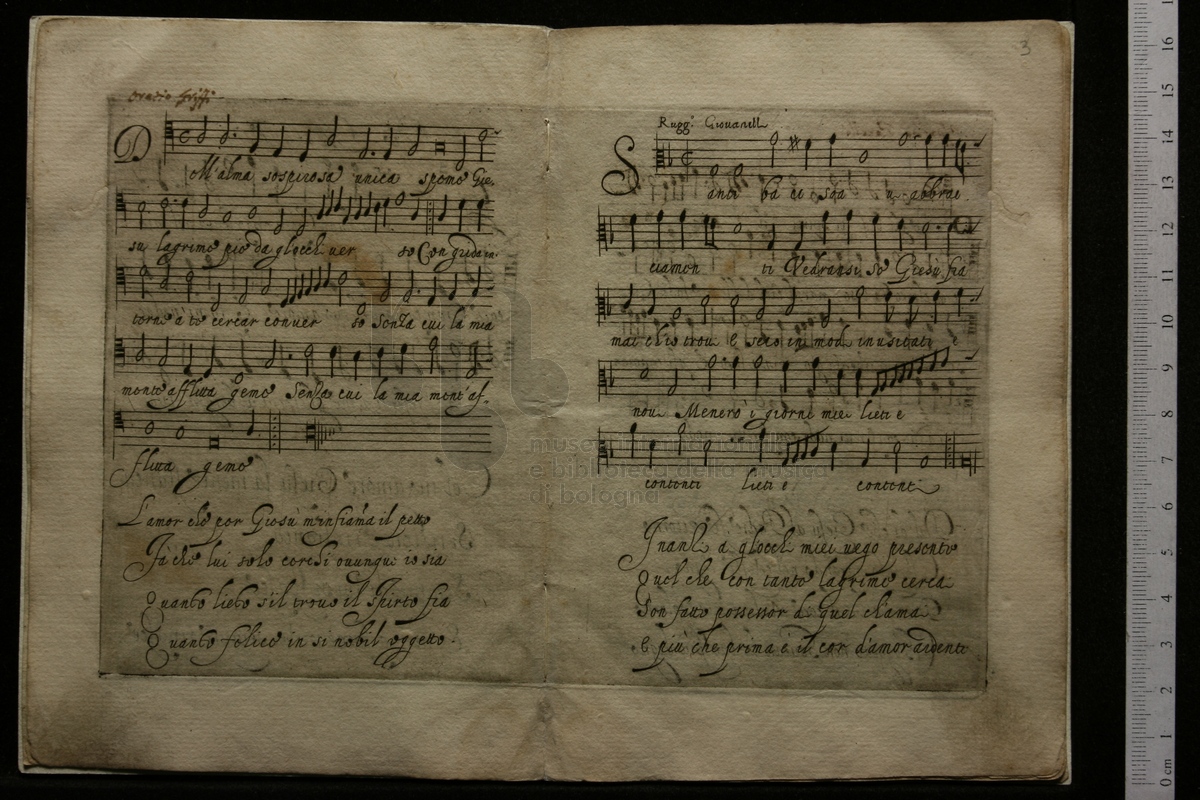 Oratio Griffi
D
M'alma sospirosa unica speme Gie,
su lagrime pie da gl'occhi ver so Con guida in
torn' a te cercar conver so Senza cui la mia
mente afflitta geme Senza cui la mia ment' af,
flitta geme
L'amor che per Giesù m'infiama il petto
Fà che lui solo cerchi ovunque io sia
Quanto lieto s'il trovo il Spirto fia
Quanto felice in si nobil oggetto.
3
Rugg.º Giovanelli
S
anti ba ci soa u abbrac
ciamenti Vedransi, se Giesù fia
mai ch'io trovi E seco in modi inusitati e
novi Menerò i giorni miei lieti e
contenti lieti e contenti
Inanzi a gl'occhi miei vego presente
Quel che con tante lagrime cercai
Son fatto possessor di quel ch'amai
E più che prima è il cor d'amor ardente
museo internazionale
e biblioteca della musica
di bologna
0 cm 1 2 3 4 5 6 7 8 9 10 11 12 13 14 15 16